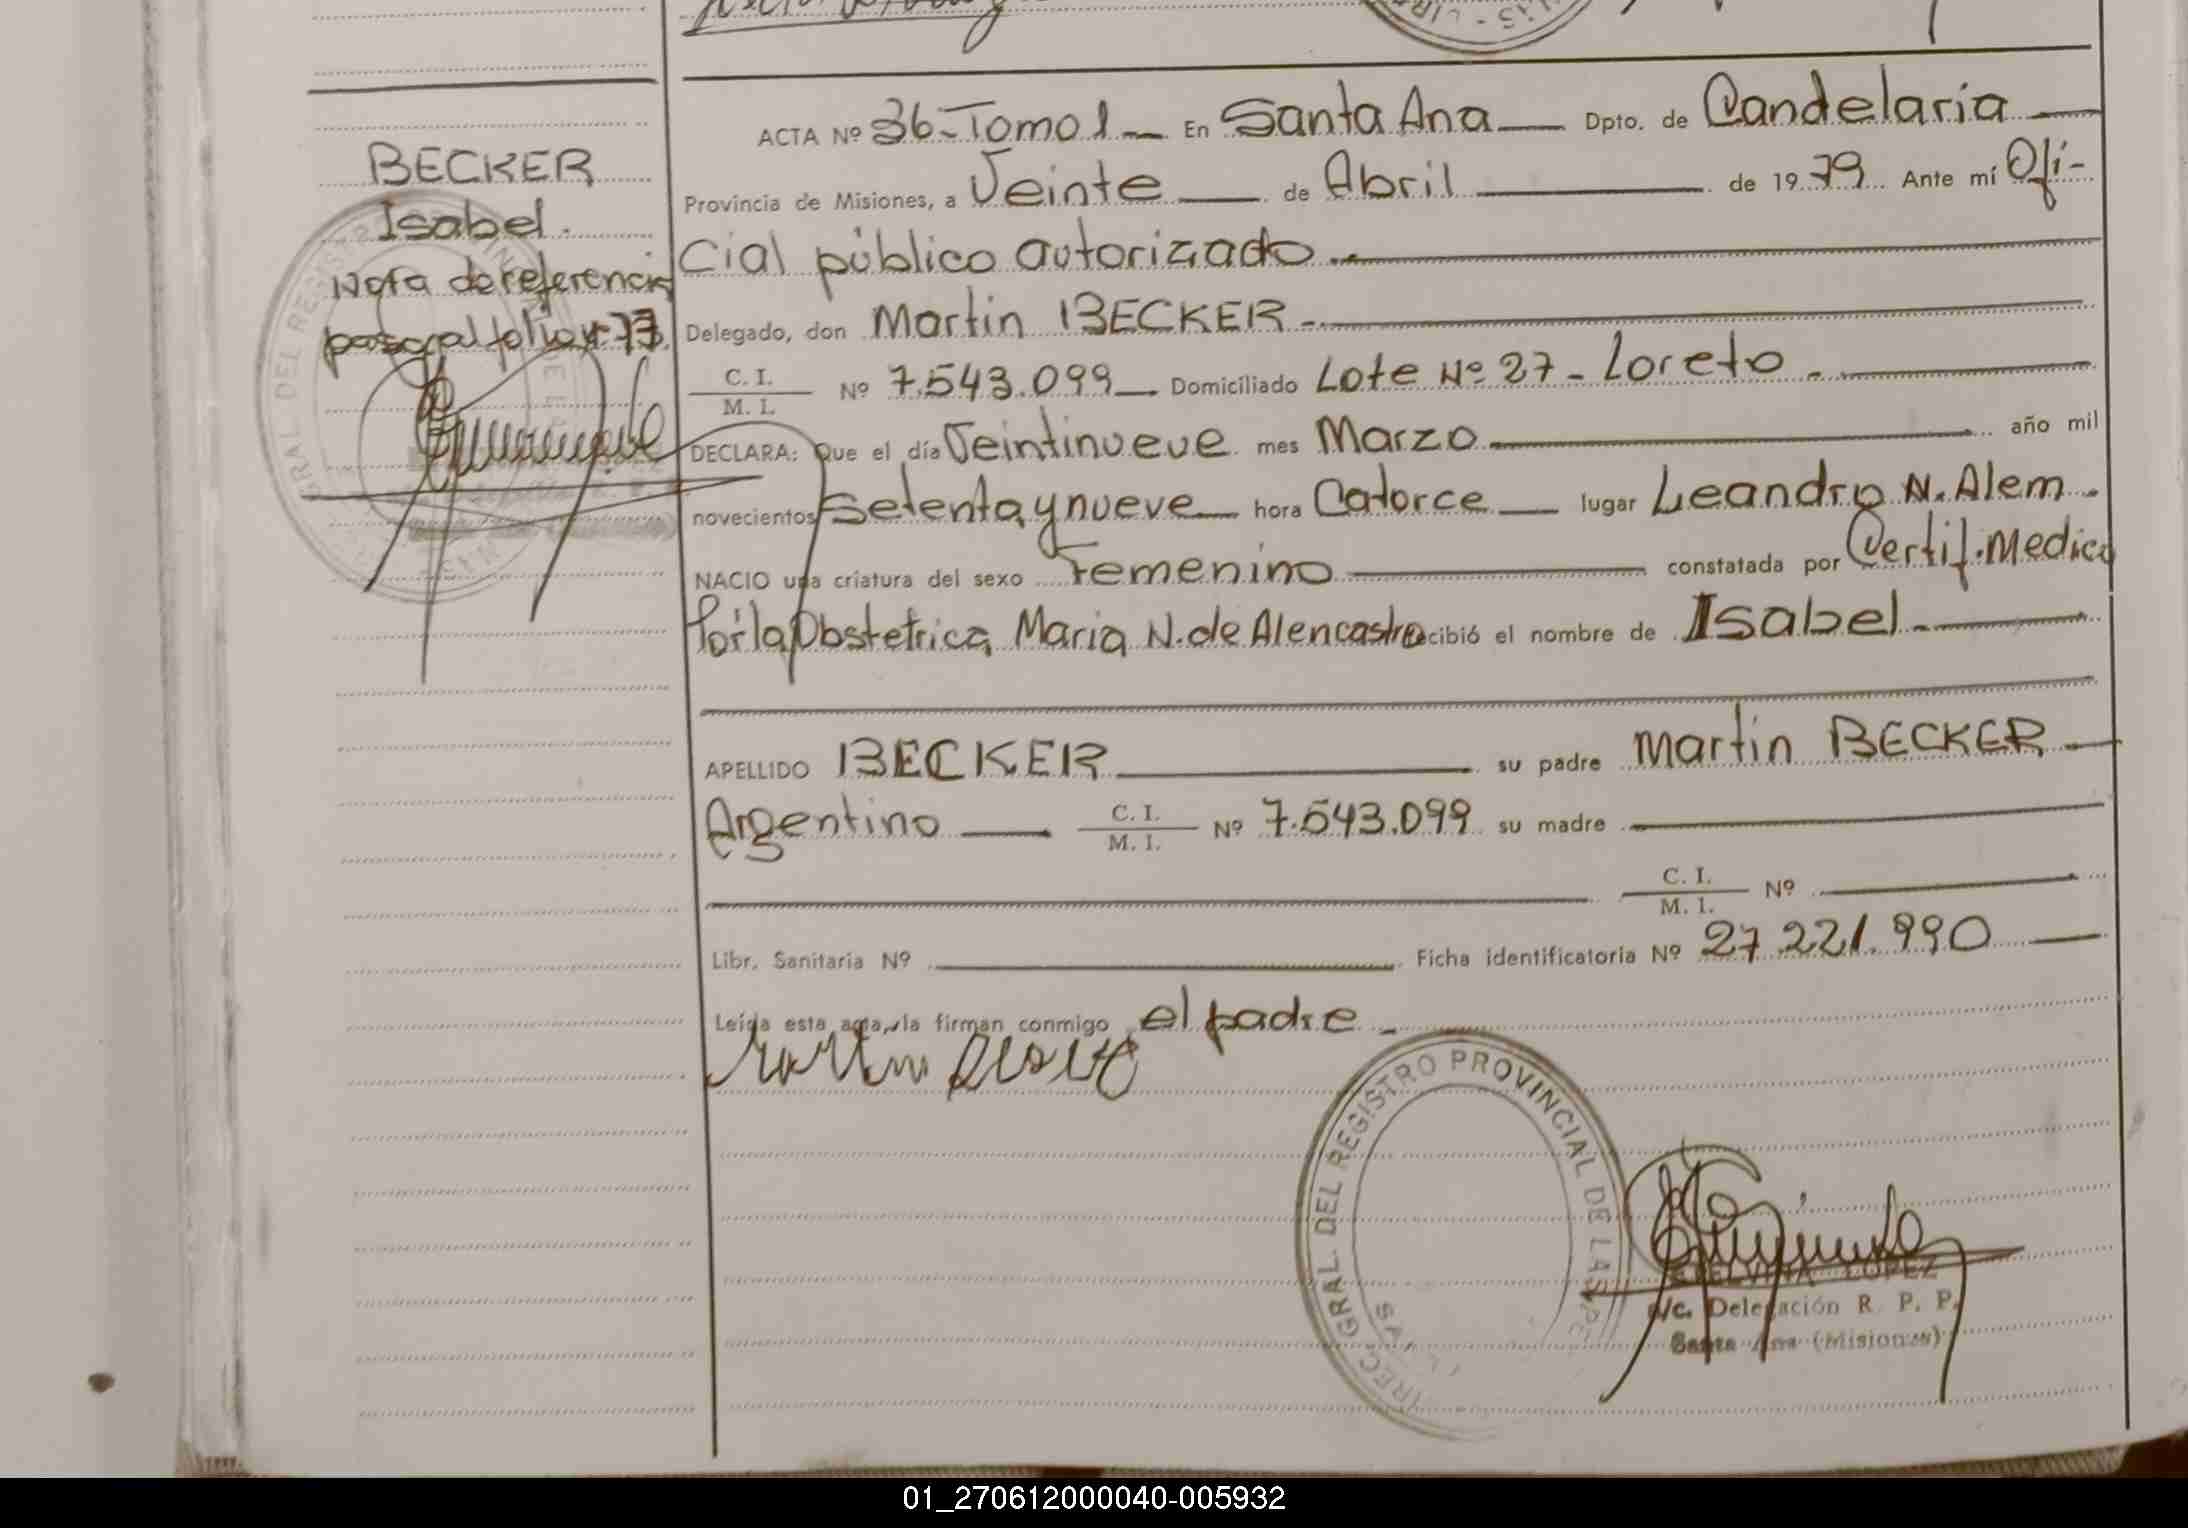 ACTA Nº 36-Tomo 1 En Santa Ana Dpto. de Candelaria
BECKER
Provincia de Misiones, a Veinte de Abril de 1979 Ante mí Ofi-
Isabel.
cial público autorizado.
Nota de referencia
pasa al folio nº 73.
Delegado, don Martin BECKER
C. I.
M. I. Nº 7.543.099 Domiciliado Lote Nº 27 - Loreto
DECLARA: Que el día Veintinueve mes Marzo año mil
novecientos setenta y nueve hora Catorce lugar Leandro N. Alem
NACIO una criatura del sexo Femenino constatada por Certif. Medico
Por la Obstetrica Maria N. de Alencastro recibió el nombre de Isabel
APELLIDO BECKER su padre Martin BECKER
Argentino C. I.
M. I. Nº 7.543.099 su madre
C. I.
M. I. Nº
Libr. Sanitaria Nº Ficha identificatoria Nº 27.221.990
Leída esta acta, la firman conmigo el padre
DIREC. GRAL. DEL REGISTRO PROVINCIAL DE LAS
LOPEZ
a/c. Delegación R. P. P.
Santa Ana (Misiones)
01_270612000040-005932